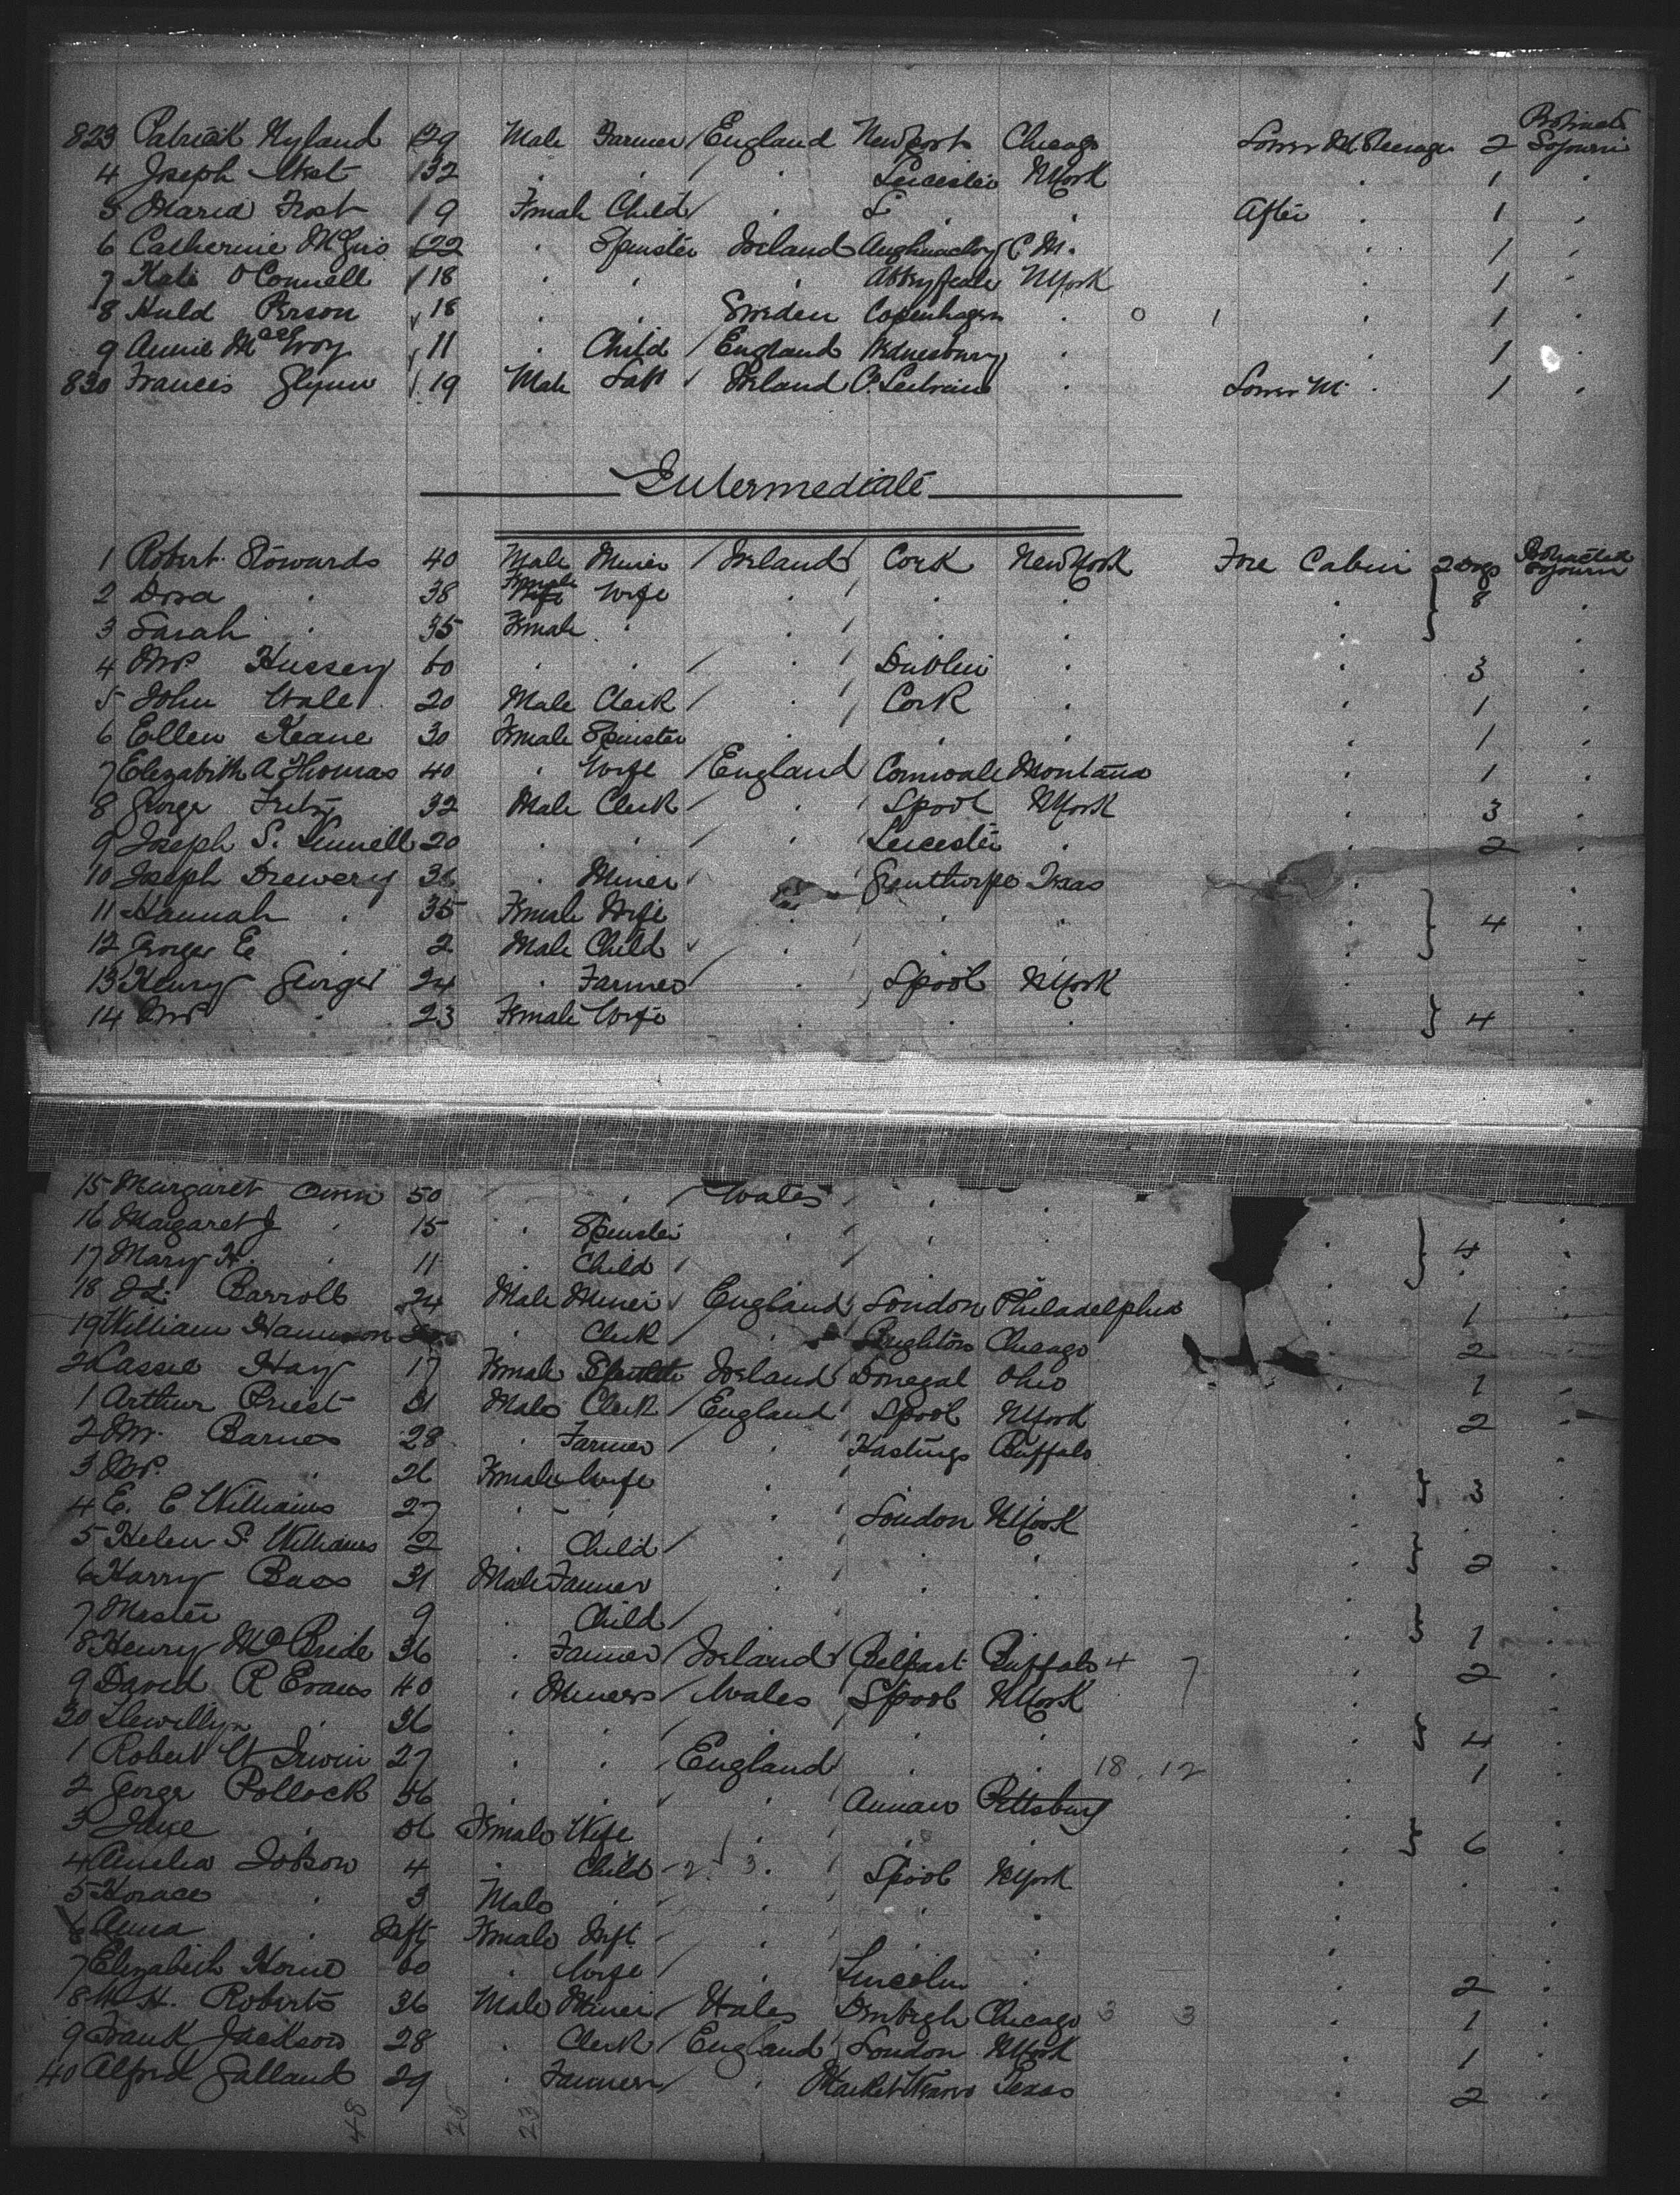 823 Patrick Hyland 29 Male Farmer England Newport Chicago Lower M Steerage 2 Protracted Sojourn
4 Joseph West 32 " " " Leicester N York " 1 "
5 Maria Frost 9 Female Child " L " " After " 1 "
6 Catherine 22 " Spinster Ireland C. M. " 1 "
7 Kate O'Connell 18 " " " Abbyfeale N York " 1 "
8 Huld Person 18 " " Sweden Copenhagen " 0 1 " 1 "
9 Annie 11 " Child England Wednesbury " " 1 "
830 Francis Glynn 19 Male Lab Ireland C. Leitrim " Lower M. " 1 "
Intermediate
1 Robert Stowards 40 Male Miner Ireland Cork New York Fore Cabin 2 Bags Protracted Sojourn
2 Dora " 38 Female Wife " " " " 8 "
3 Sarah " 35 Female " " " " " "
4 Mrs Hussey 60 " " " Dublin " " 3 "
5 John 20 Male Clerk " Cork " " 1 "
6 Ellen Keane 30 Female Spinster " " " " 1 "
7 Elizabeth A Thomas 40 " Wife England Cornwale Montana " 1 "
8 George 32 Male Clerk " Lpool N York " 3 "
9 Joseph S. 20 " " " Leicester " " 2 "
10 Joseph Drewery 36 " Miner Texas "
11 Hannah " 35 Female Wife " " " " 4 "
12 George E " 2 Male Child " " " "
13 Henry George 24 " Farmer " Lpool N York " "
14 Mrs " 23 Female Wife " " " " 4 "
15 Margaret Owen 50 " " Wales " "
16 Margaret J " 15 " Spinster " " " "
17 Mary H. " 11 " Child " " " " 4 "
18 Barrolt 24 Male Miner England London Philadelphia 1 "
19 William " Clerk " Chicago 2 "
20 Cassie Hay 17 Female Spinster Ireland Donegal Ohio " 1 "
1 Arthur Priest 31 Male Clerk England Lpool N York " 2 "
2 Mr. Barnes 28 " Farmer " Hastings Buffalo "
3 Mrs. " 26 Female Wife " " " " 3 "
4 E. C Williams 27 " " " London N York "
5 Helen S. Williams 2 " Child " " " " 2 "
6 Harry Bass 31 Male Farmer " " " "
7 Master 9 " Child " " " " 1 "
8 Henry McBride 36 " Farmer Ireland Belfast Buffalo 4 7 " 2 "
9 David R Evans 40 " Miners Wales Lpool N York "
30 Llewillyn " 36 " " " " " " 4 "
1 Robert W Irwin 27 " " England " " 18. 12 " 1 "
2 George Pollock 56 " " " Annan Pittsburg "
3 Jane " 56 Female Wife " " " " 6 "
4 Amelia Jobson 4 " Child 2 3 " Lpool N York " "
5 Horace " 3 Male " " " " "
6 Anna " Inft Female Inft " " " " "
7 Elizabeth Horne 60 " Wife " Lincoln " " 2 "
8 W. H. Roberts 36 Male Miner Wales Denbigh Chicago 3 3 " 1 "
9 Frank Jackson 28 " Clerk England London N York " 1 "
40 Alfred Galland 29 " Farmer " Texas " 2 "
48 26 23